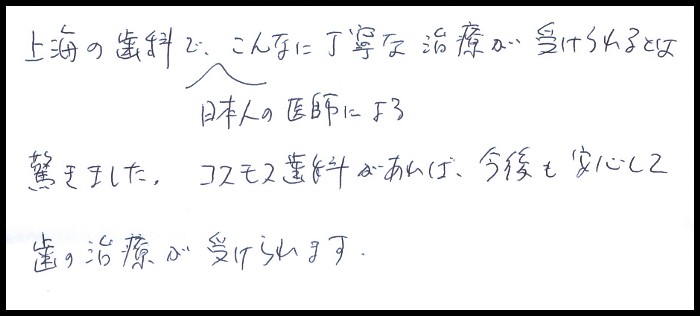 上海の歯科で、こんなに丁寧な治療が受けられるとは
日本人の医師による
驚きました。コスモス歯科があれば、今後も安心して
歯の治療が受けられます.